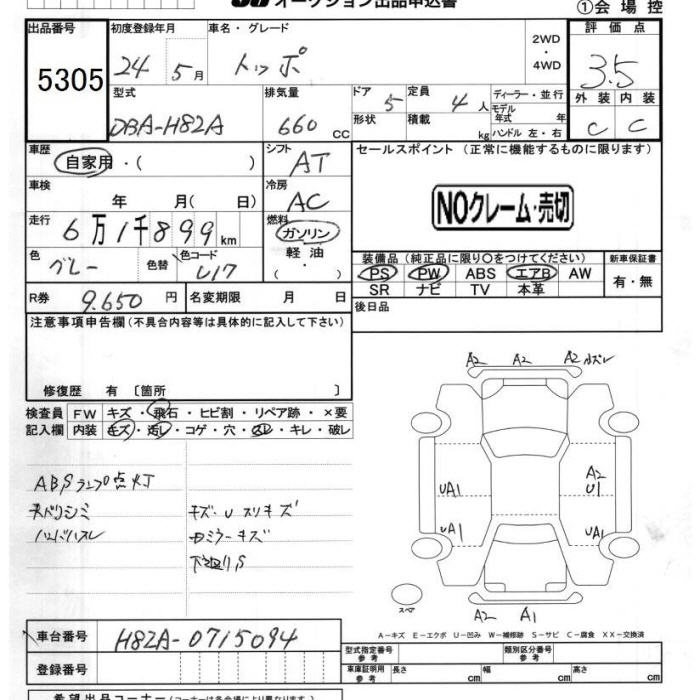 オークション出品申込書
①会場控
出品番号 初度登録年月 車名・グレード 2WD ・ 4WD 評価点
5305 24年5月 トッポ 3.5
型式 排気量 ドア 定員 ディーラー・並行 外装 内装
DBA-H82A 660 CC 5 4人 モデル年式 年 C C
形状 積載 kg ハンドル 左・右
車歴 シフト セールスポイント (正常に機能するものに限ります)
自家用・( ) AT
車検 冷房
年 月( 日) AC NOクレーム・売切
走行 燃料
6万1千899km ガソリン
色 色替 色コード 軽油 装備品(純正品に限り○をつけてください) 新車保証書
グレー U17 ・( ) PS PW ABS エアB AW 有・無
R券 9.650円 名変期限 月 日 SR ナビ TV 本革
注意事項申告欄(不具合内容等は具体的に記入して下さい) 後日品
修復歴 有 〔箇所 〕
検査員 FW キズ・飛石・ヒビ割・リペア跡・×要
記入欄 内装 キズ・汚レ・コゲ・穴・スレ・キレ・破レ
A2 A2 A2 カズレ
ABSランプ点灯
天バリシミ キズ・Uスリキズ
ハンドハスレ
UA1 A2 U1
UA1 UA1
スペア
A2 A1
A-キズ E-エクボ U-凹み W-補修跡 S-サビ C-腐食 XX-交換済
車台番号 H82A-0715094
型式指定番号 参考 類別区分番号 参考
登録番号 車庫証明用 参考 長さ 幅 高さ
希望出品コーナー(コーナーは各会場により異なります)